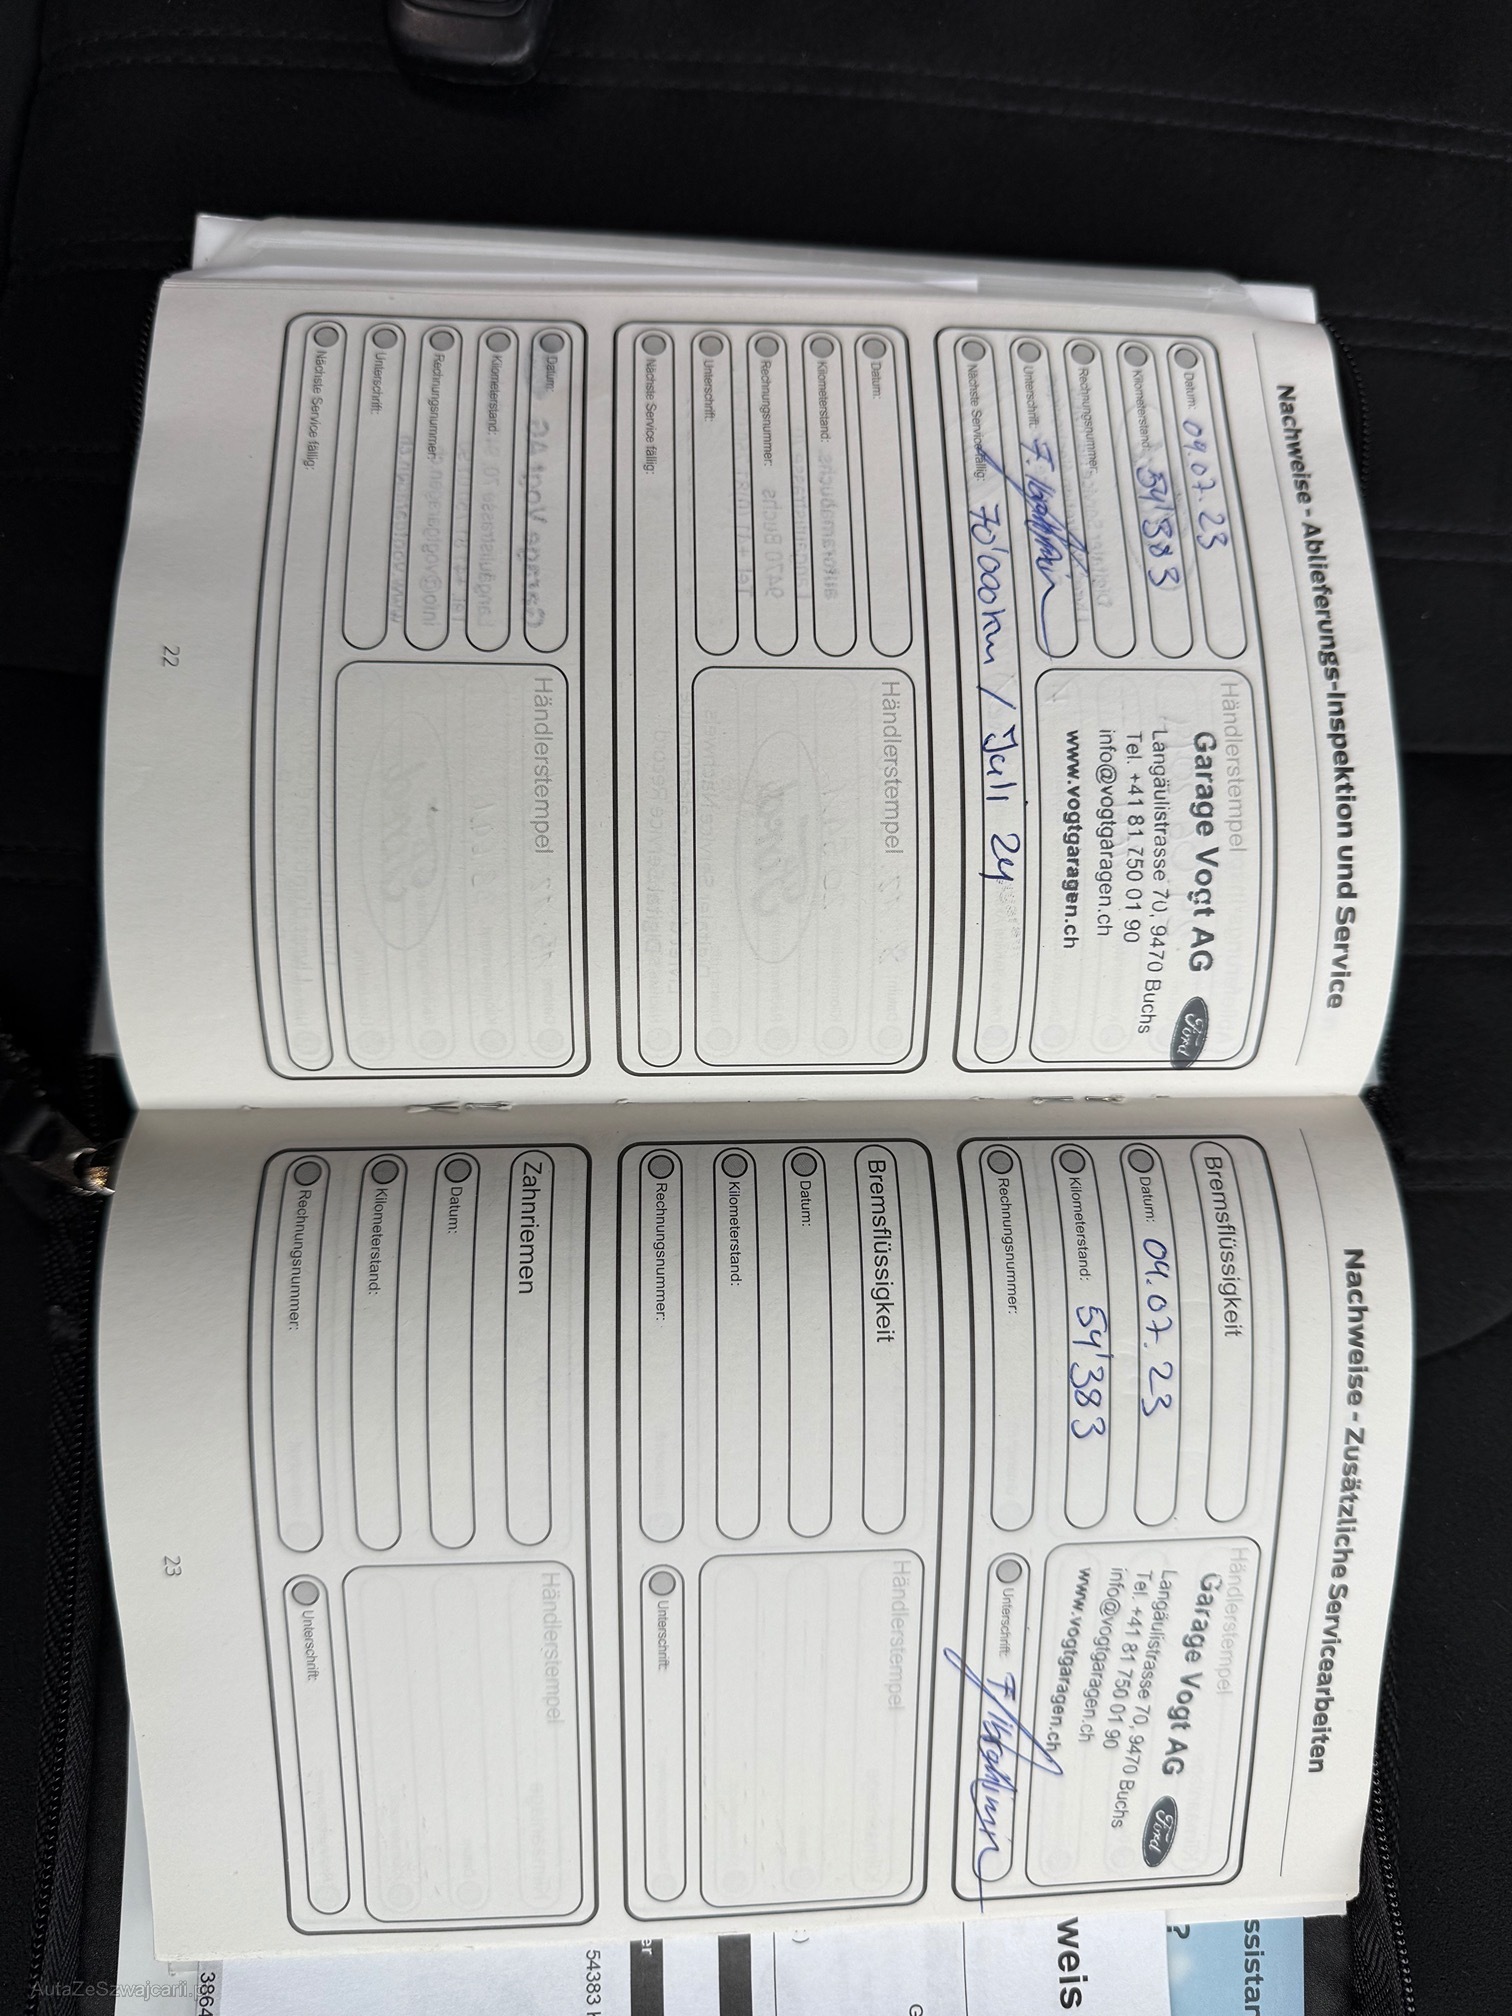 Nachweise - Ablieferungs-Inspektion und Service
Datum: 04.07.23
Kilometerstand: 54'383
Rechnungsnummer:
Unterschrift:
Nächste Service fällig: 70'000km / Juli 24
Händlerstempel
Garage Vogt AG
Ford
Langäulistrasse 70, 9470 Buchs
Tel. +41 81 750 01 90
info@vogtgaragen.ch
www.vogtgaragen.ch
Datum:
Kilometerstand:
Rechnungsnummer:
Unterschrift:
Nächste Service fällig:
Händlerstempel
Datum:
Kilometerstand:
Rechnungsnummer:
Unterschrift:
Nächste Service fällig:
Händlerstempel
22
Nachweise - Zusätzliche Servicearbeiten
Bremsflüssigkeit
Datum: 04.07.23
Kilometerstand: 54'383
Rechnungsnummer:
Händlerstempel
Garage Vogt AG
Ford
Langäulistrasse 70, 9470 Buchs
Tel. +41 81 750 01 90
info@vogtgaragen.ch
www.vogtgaragen.ch
Unterschrift:
Bremsflüssigkeit
Datum:
Kilometerstand:
Rechnungsnummer:
Händlerstempel
Unterschrift:
Zahnriemen
Datum:
Kilometerstand:
Rechnungsnummer:
Händlerstempel
Unterschrift:
23
ssistan
?
weis
54383
3864
AutaZeSzwajcarii.p